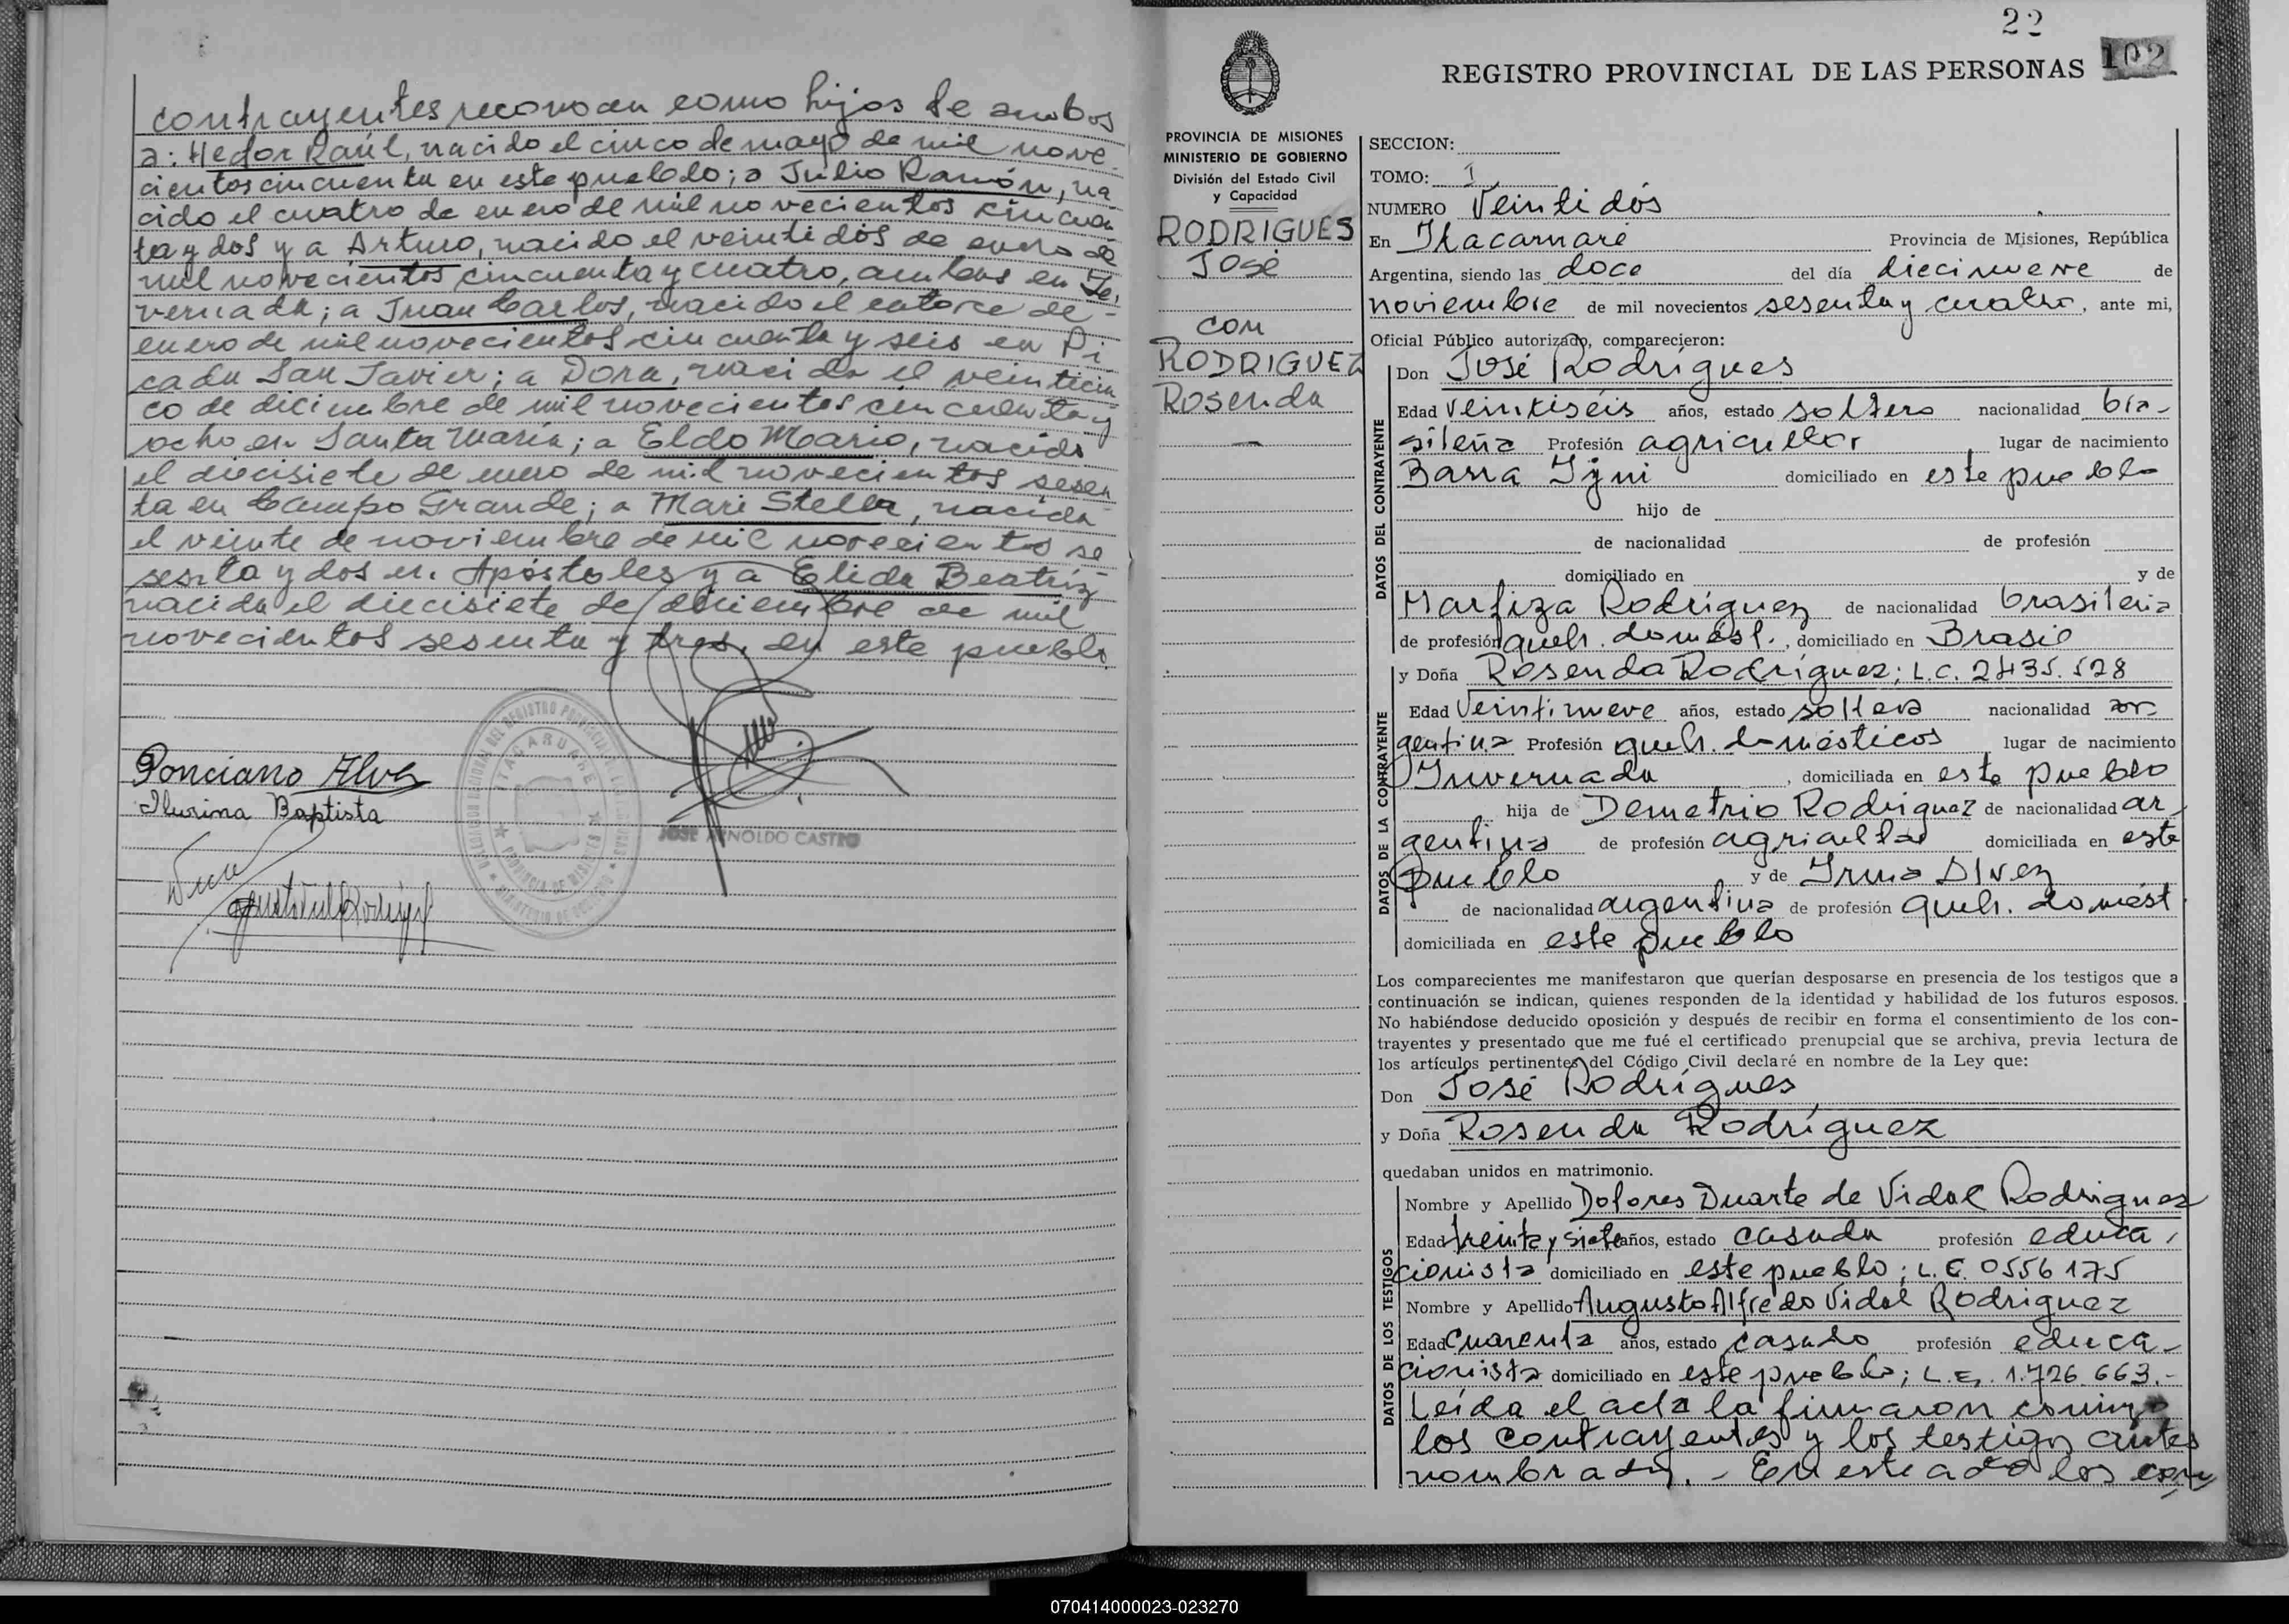 contrayentes reconocen como hijos de ambos
a: Hector Raúl, nacido el cinco de mayo de mil nove-
cientos cincuenta en este pueblo; a Julio Ramón, na-
cido el cuatro de enero de mil novecientos cincuen
ta y dos y a Arturo, nacido el veintidós de enero de
mil novecientos cincuenta y cuatro, ambos en
vernada; a Juan Carlos, nacido el catorce de
enero de mil novecientos cincuenta y seis en Pi
cada San Javier; a Dora, nacida el veinticin
co de diciembre de mil novecientos cincuenta y
ocho en Santa María; a Eldo Mario, nacido
el diecisiete de enero de mil novecientos sesen
ta en Campo Grande; a Mari Stella, nacida
el veinte de noviembre de mil novecientos se
senta y dos en Apóstoles y a Elida Beatriz
nacida el diecisiete de diciembre de mil
novecientos sesenta y tres, en este pueblo.
Ponciano Alves
Ilurina Baptista
ITACARUARE
PROVINCIA DE MISIONES
JOSE ARNOLDO CASTRO
22
102
REGISTRO PROVINCIAL DE LAS PERSONAS
PROVINCIA DE MISIONES
MINISTERIO DE GOBIERNO
División del Estado Civil
y Capacidad
RODRIGUES
José
con
RODRIGUEZ
Rosenda
SECCION:
TOMO: I
NUMERO Veintidós
En Itacaruaré Provincia de Misiones, República
Argentina, siendo las doce del día diecinueve de
noviembre de mil novecientos sesenta y cuatro, ante mi,
Oficial Público autorizado, comparecieron:
DATOS DEL CONTRAYENTE
Don José Rodrígues
Edad Veintiséis años, estado soltero nacionalidad bra-
sileña Profesión agricultor lugar de nacimiento
Barra Iguí domiciliado en este pueblo
hijo de
de nacionalidad de profesión
domiciliado en y de
Marfiza Rodríguez de nacionalidad brasileña
de profesión queh. domést., domiciliado en Brasil
DATOS DE LA CONTRAYENTE
y Doña Rosenda Rodríguez; L.C. 2435.528
Edad Veintinueve años, estado soltera nacionalidad ar-
gentina Profesión queh. domésticos lugar de nacimiento
Invernada, domiciliada en este pueblo
hija de Demetrio Rodriguez de nacionalidad ar-
gentina de profesión agricultor domiciliada en este
pueblo y de Irma Alvez
de nacionalidad argentina de profesión queh. domést
domiciliada en este pueblo
Los comparecientes me manifestaron que querían desposarse en presencia de los testigos que a
continuación se indican, quienes responden de la identidad y habilidad de los futuros esposos.
No habiéndose deducido oposición y después de recibir en forma el consentimiento de los con-
trayentes y presentado que me fué el certificado prenupcial que se archiva, previa lectura de
los artículos pertinentes del Código Civil declaré en nombre de la Ley que:
Don José Rodrígues
y Doña Rosenda Rodríguez
quedaban unidos en matrimonio.
DATOS DE LOS TESTIGOS
Nombre y Apellido Dolores Duarte de Vidal Rodriguez
Edad treinta y siete años, estado casada profesión educa-
cionista domiciliado en este pueblo; L.C. 0556175
Nombre y Apellido Augusto Alfredo Vidal Rodriguez
Edad cuarenta años, estado casado profesión educa-
cionista domiciliado en este pueblo; L.E. 1.726.663.-
Leída el acta la firmaron conmigo
los contrayentes y los testigos antes
nombrados. - En este acto los con
070414000023-023270